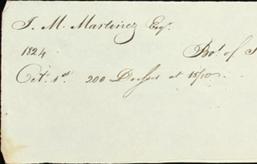 J. M. Martinez Esqr.
1824 Bot. of
Oct. 1st. 200 at 15/10